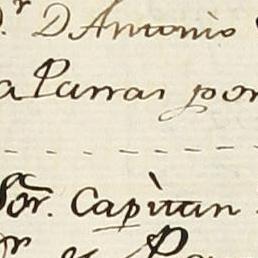 .r D Antonio
a Parras por
Sor. Capitan